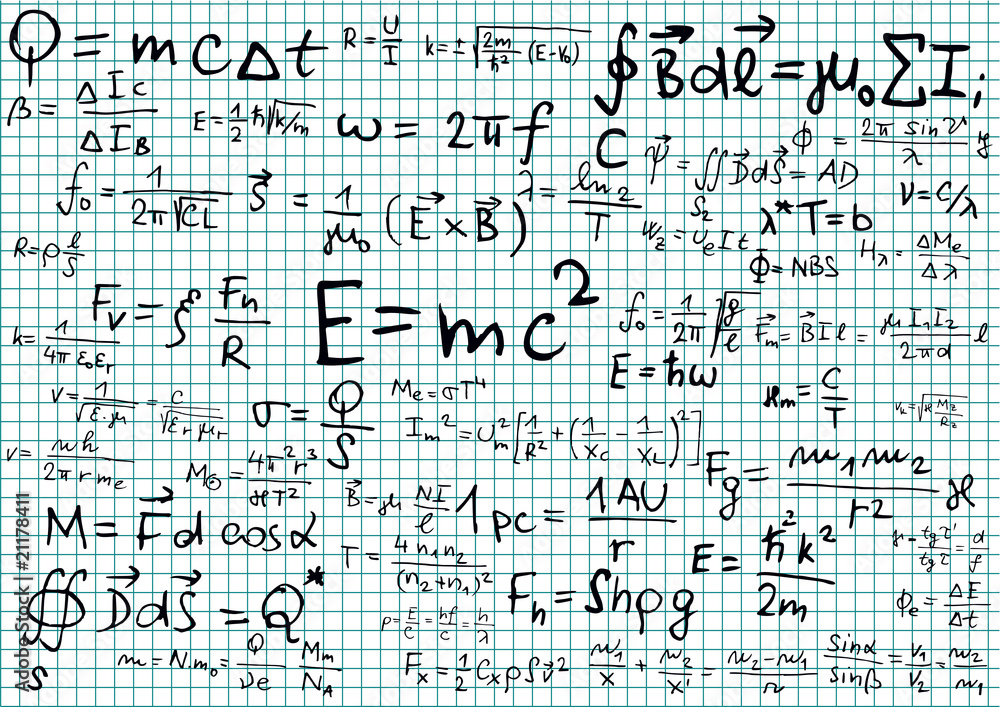 Q = m c Δ t
R = U/I
k = ± √(2m/ħ² (E-V₀))
∮ B⃗ dℓ⃗ = μ₀ Σ I;
C
β = ΔIc/ΔI_B
E = 1/2 ħ√k/m
ω = 2πf
ϕ = 2π sin ϑ/λ y
f₀ = 1/2π√CL
S⃗ = 1/μ₀ (E⃗ × B⃗)
λ = ln2/T
Ψ⃗ = ∬ D⃗ dS⃗ = AD
S₂
ν = c/λ
λ* T = b
R = ρ ℓ/S
W_z = U_e I t
Φ = NBS
H_λ = ΔM_e/Δλ
F_v = ξ F_n/R
E = mc²
f₀ = 1/2π √g/ℓ
F⃗_m = B⃗ I ℓ = μ I₁ I₂/2πd ℓ
k = 1/4π ε₀ε_r
E = ħω
ϰ_m = C/T
v = 1/√ε·μ = c/√ε_r μ_r
σ = Q/S
M_e = σT⁴
v_k = √ϰ M_z/R_z
I_m² = U_m² [1/R² + (1/X_C - 1/X_L)²]
v = nh/2π r m_e
M_☉ = 4π² r³/ϰT²
F_g = m₁ m₂/r² ϰ
B⃗ = μ NI/ℓ
1 pc = 1 AU/r
M = F⃗ d cos α
T = 4 n₁n₂/(n₂+n₁)²
E = ħ² k²/2m
γ - tg τ'/tg τ = d/f
∯ D⃗ dS⃗ = Q*
S
p = E/c = hf/c = h/λ
F_h = Shρg
ϕ_e = ΔE/Δt
m = N·m₀ = Q/νe M_m/N_A
F_x = 1/2 C_x ρ S v⃗²
n₁/x + n₂/x' = n₂-n₁/r
Sinα/Sinβ = v₁/v₂ = n₂/n₁
Adobe Stock | #21178411